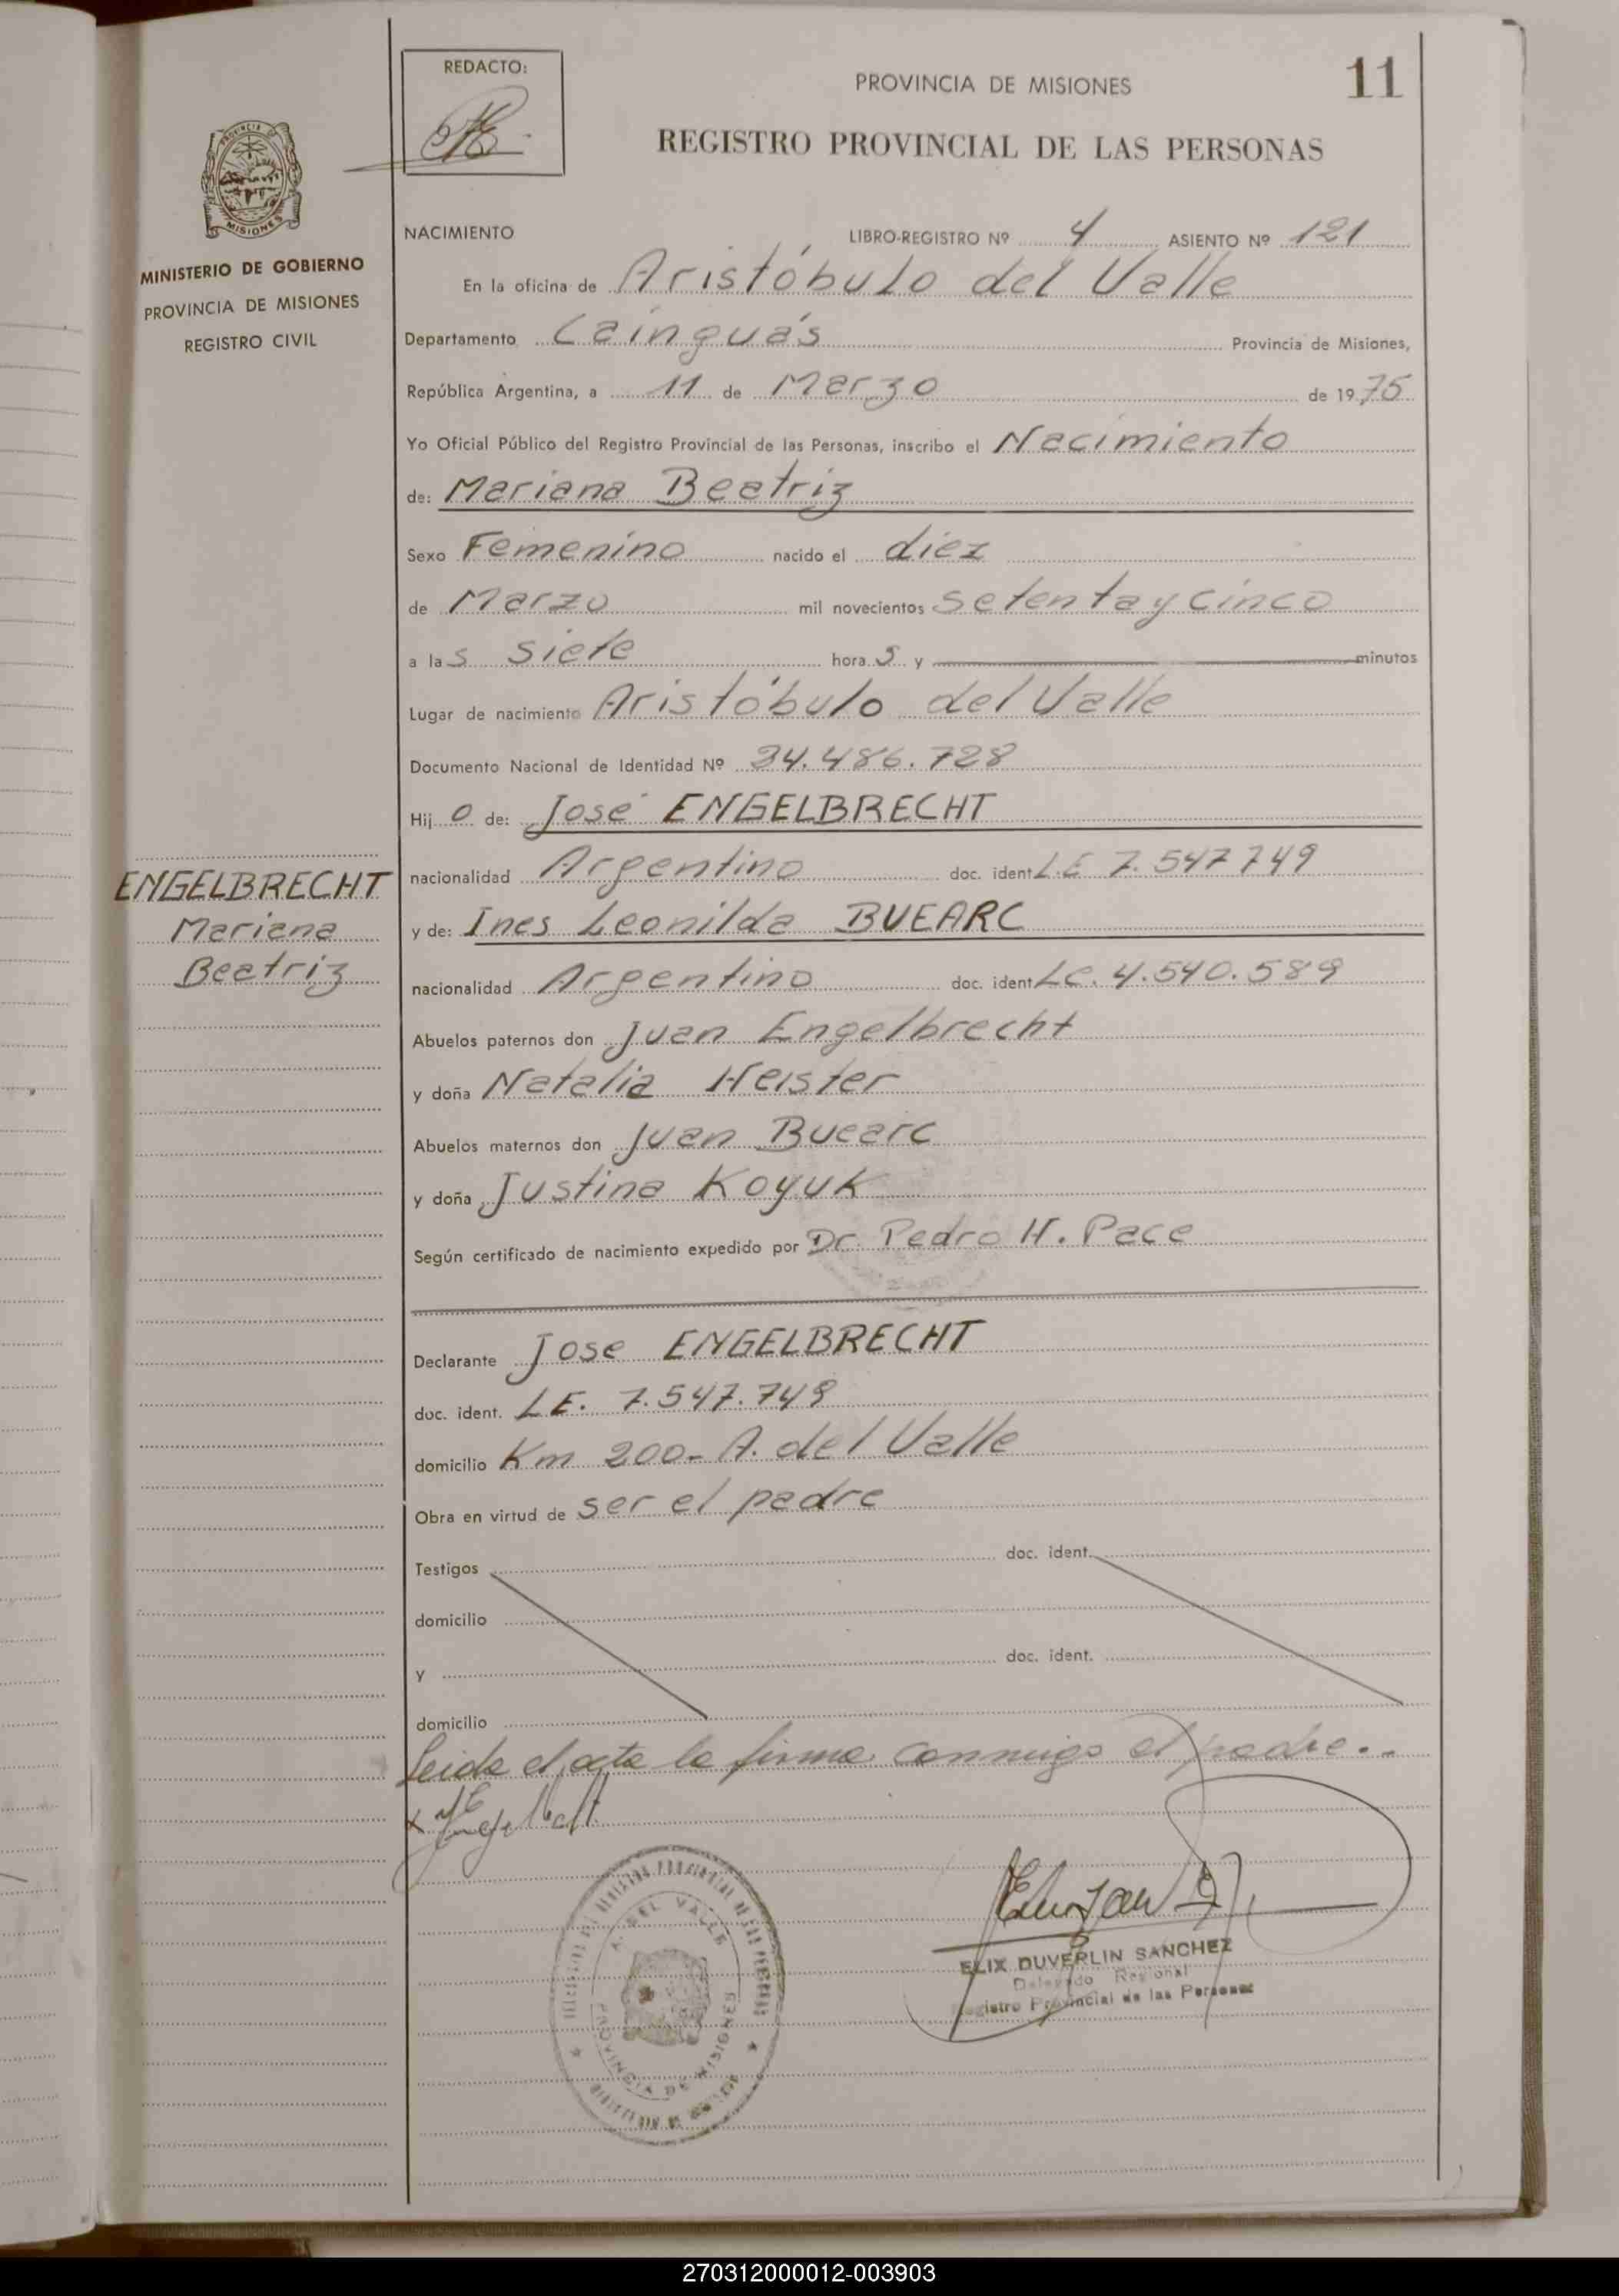 11
REDACTO:
PROVINCIA DE MISIONES
REGISTRO PROVINCIAL DE LAS PERSONAS
PROVINCIA DE
MISIONES
MINISTERIO DE GOBIERNO
PROVINCIA DE MISIONES
REGISTRO CIVIL
NACIMIENTO LIBRO-REGISTRO Nº 4 ASIENTO Nº 121
En la oficina de Aristóbulo del Valle
Departamento Cainguás Provincia de Misiones,
República Argentina, a 11 de Marzo de 1975
Yo Oficial Público del Registro Provincial de las Personas, inscribo el Nacimiento
de: Mariana Beatriz
Sexo Femenino nacido el diez
de Marzo mil novecientos setenta y cinco
a las siete horas y minutos
Lugar de nacimiento Aristóbulo del Valle
Documento Nacional de Identidad Nº 24.486.728
Hijo de: José ENGELBRECHT
nacionalidad Argentino doc. ident L.E 7.547749
ENGELBRECHT
Mariana
Beatriz
y de: Ines Leonilda BUEARC
nacionalidad Argentino doc. ident LC. 4.540.589
Abuelos paternos don Juan Engelbrecht
y doña Natalia Heister
Abuelos maternos don Juan Buearc
y doña Justina Koyuk
Según certificado de nacimiento expedido por Dr. Pedro H. Pace
Declarante Jose ENGELBRECHT
doc. ident. LE. 7.547.749
domicilio Km 200- A. del Valle
Obra en virtud de ser el padre
Testigos doc. ident.
domicilio
y doc. ident.
domicilio
Leida el acta la firma conmigo el padre.-
A. DEL VALLE
PROVINCIA DE MISIONES
ELIX DUVERLIN SANCHEZ
Delegado Regional
Registro Provincial de las Personas
270312000012-003903